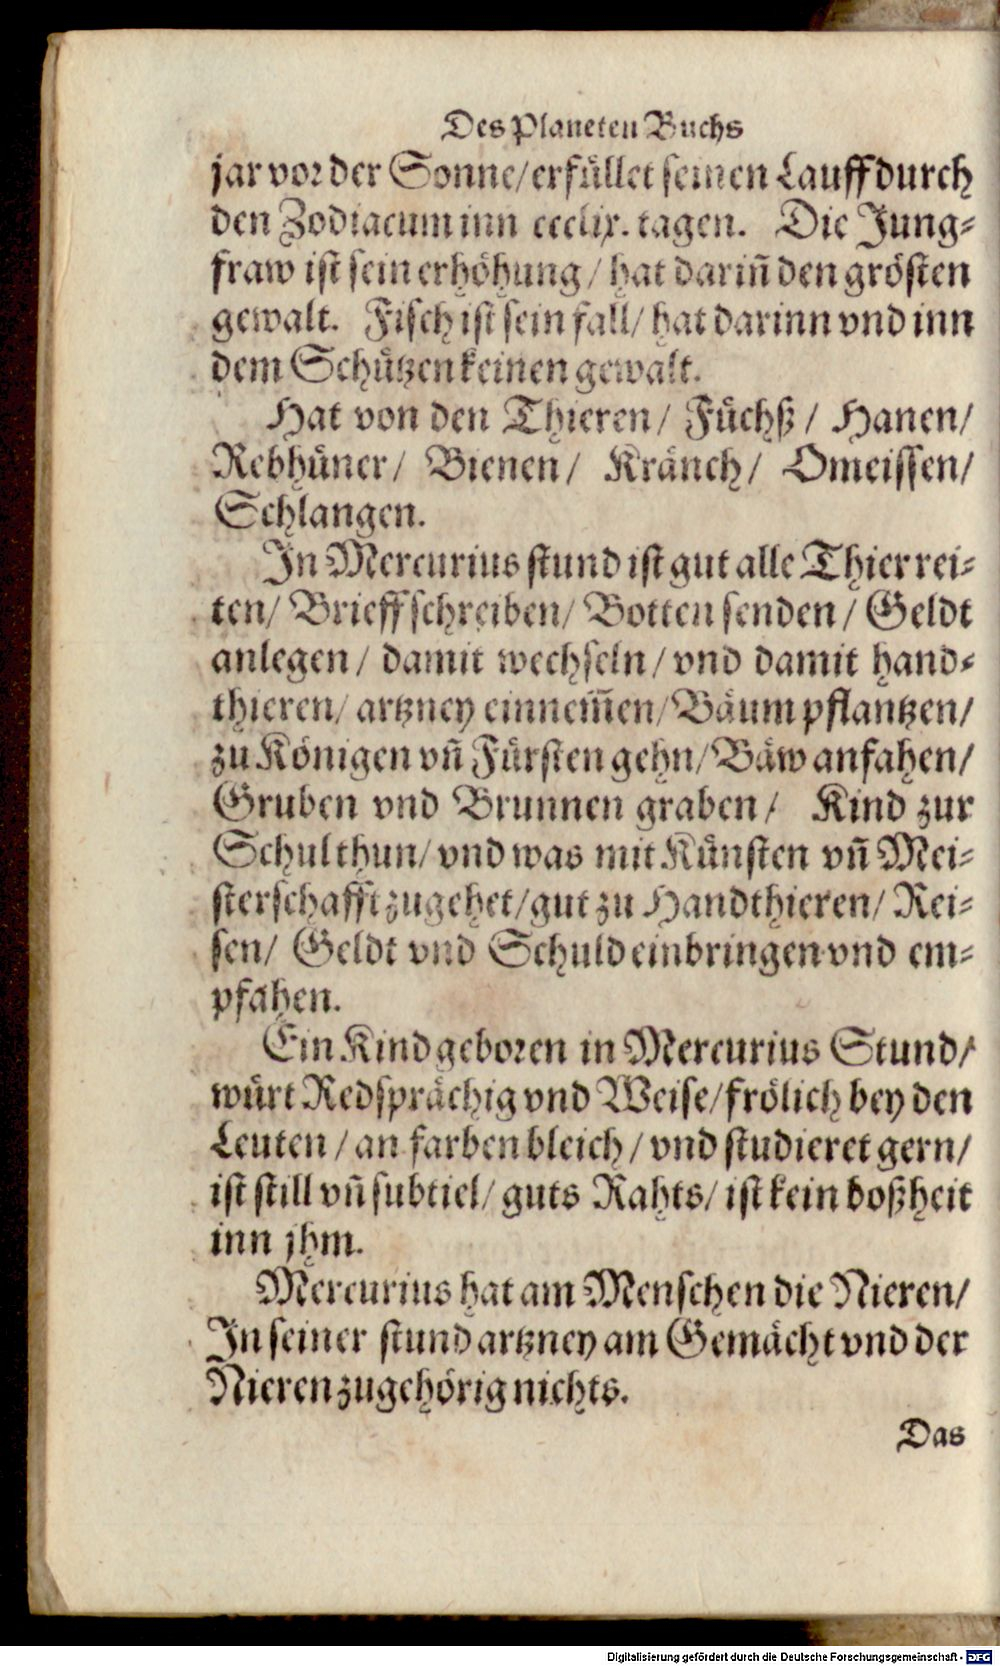 Des Planeten Buchs
jar vor der Sonne/ erfüllet seinen Lauff durch
den Zodiacum inn ccclix. tagen. Die Jung⸗
fraw ist sein erhöhung/ hat dariñ den grösten
gewalt. Fisch ist sein fall/ hat darinn vnd inn
dem Schützen keinen gewalt.
Hat von den Thieren/ Füchß/ Hanen/
Rebhüner/ Bienen/ Kränch/ Omeissen/
Schlangen.
In Mercurius stund ist gut alle Thier rei⸗
ten/ Brieff schreiben/ Botten senden/ Geldt
anlegen/ damit wechseln/ vnd damit hand⸗
thieren/ artzney einnem̃en/ Bäum pflantzen/
zu Königen vñ Fürsten gehn/ Bäw anfahen/
Gruben vnd Brunnen graben/ Kind zur
Schul thun/ vnd was mit Künsten vñ Mei⸗
sterschafft zugehet/ gut zu Handthieren/ Rei⸗
sen/ Geldt vnd Schuld einbringen vnd em⸗
pfahen.
Ein Kind geboren in Mercurius Stund/
würt Redsprächig vnd Weise/ frölich bey den
Leuten/ an farben bleich/ vnd studieret gern/
ist still vñ subtiel/ guts Rahts/ ist kein boßheit
inn jhm.
Mercurius hat am Menschen die Nieren/
In seiner stund artzney am Gemächt vnd der
Nieren zugehörig nichts.
Das
Digitalisierung gefördert durch die Deutsche Forschungsgemeinschaft - DFG